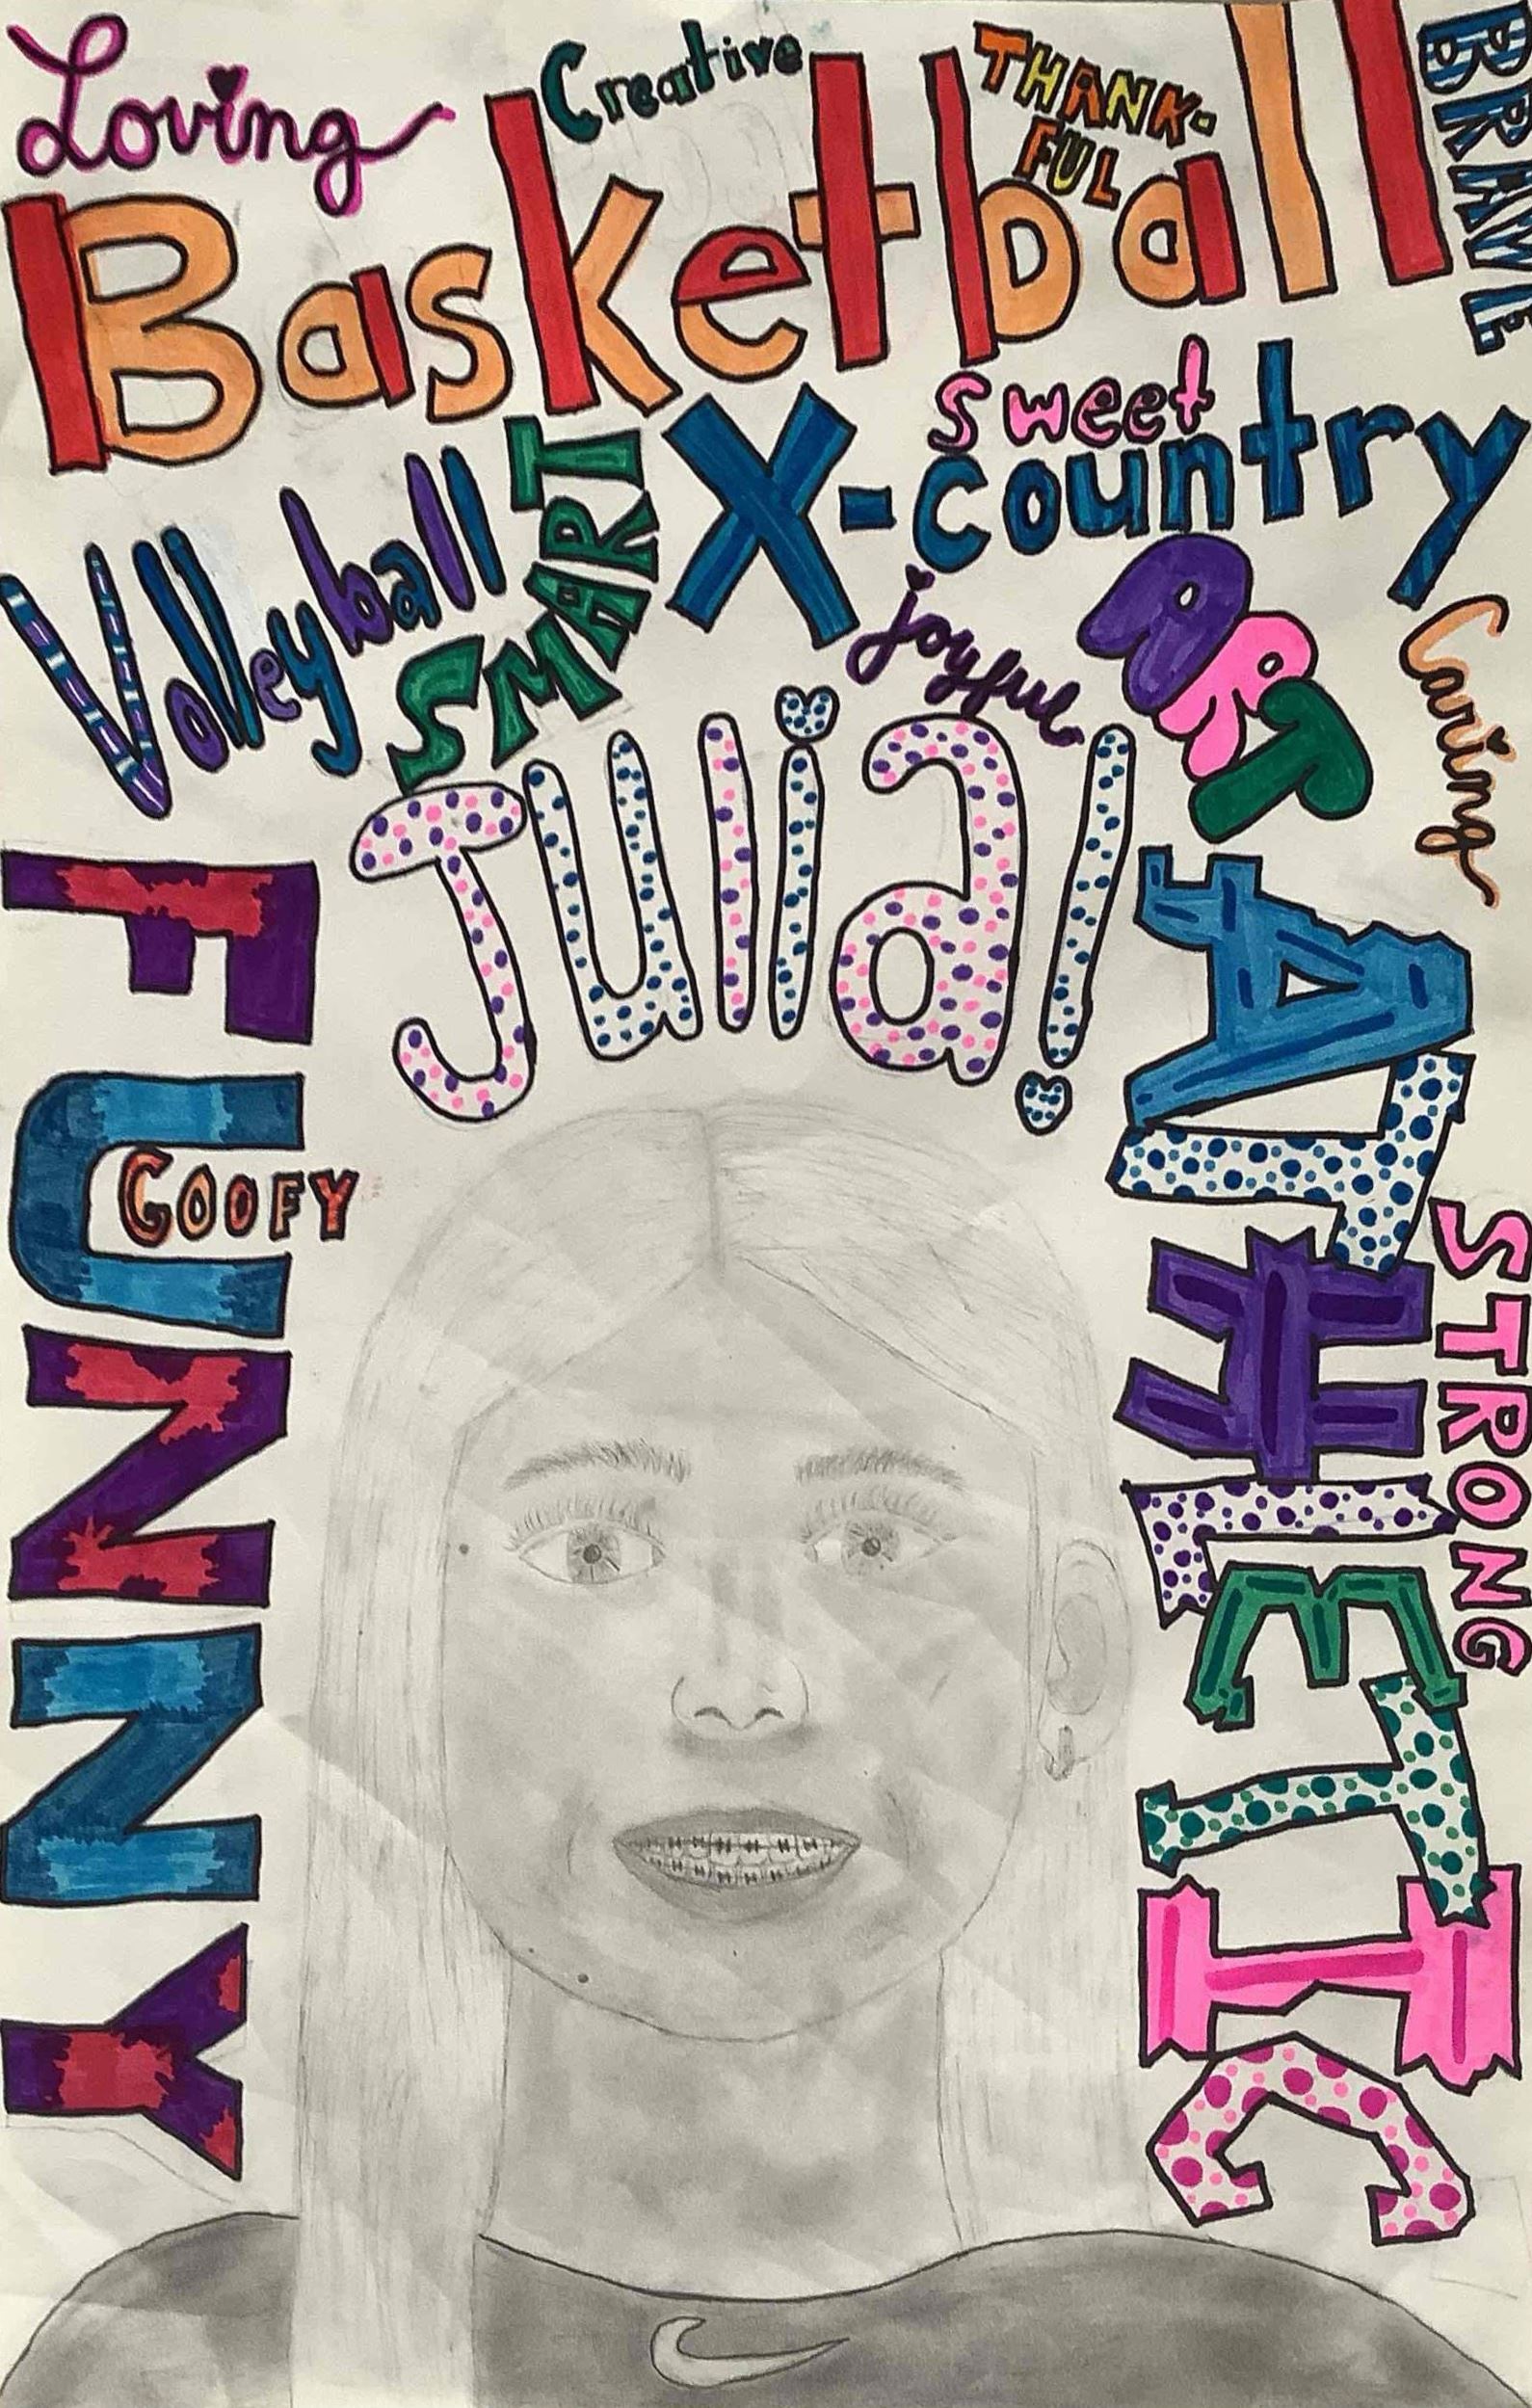 Loving
Creative
THANK-
FUL
BRAVE
Basketball
sweet
X-country
Volleyball
SMART
joyful
ART
Caring
Julia!
FUNNY
GOOFY
ATHLETIC
STRONG